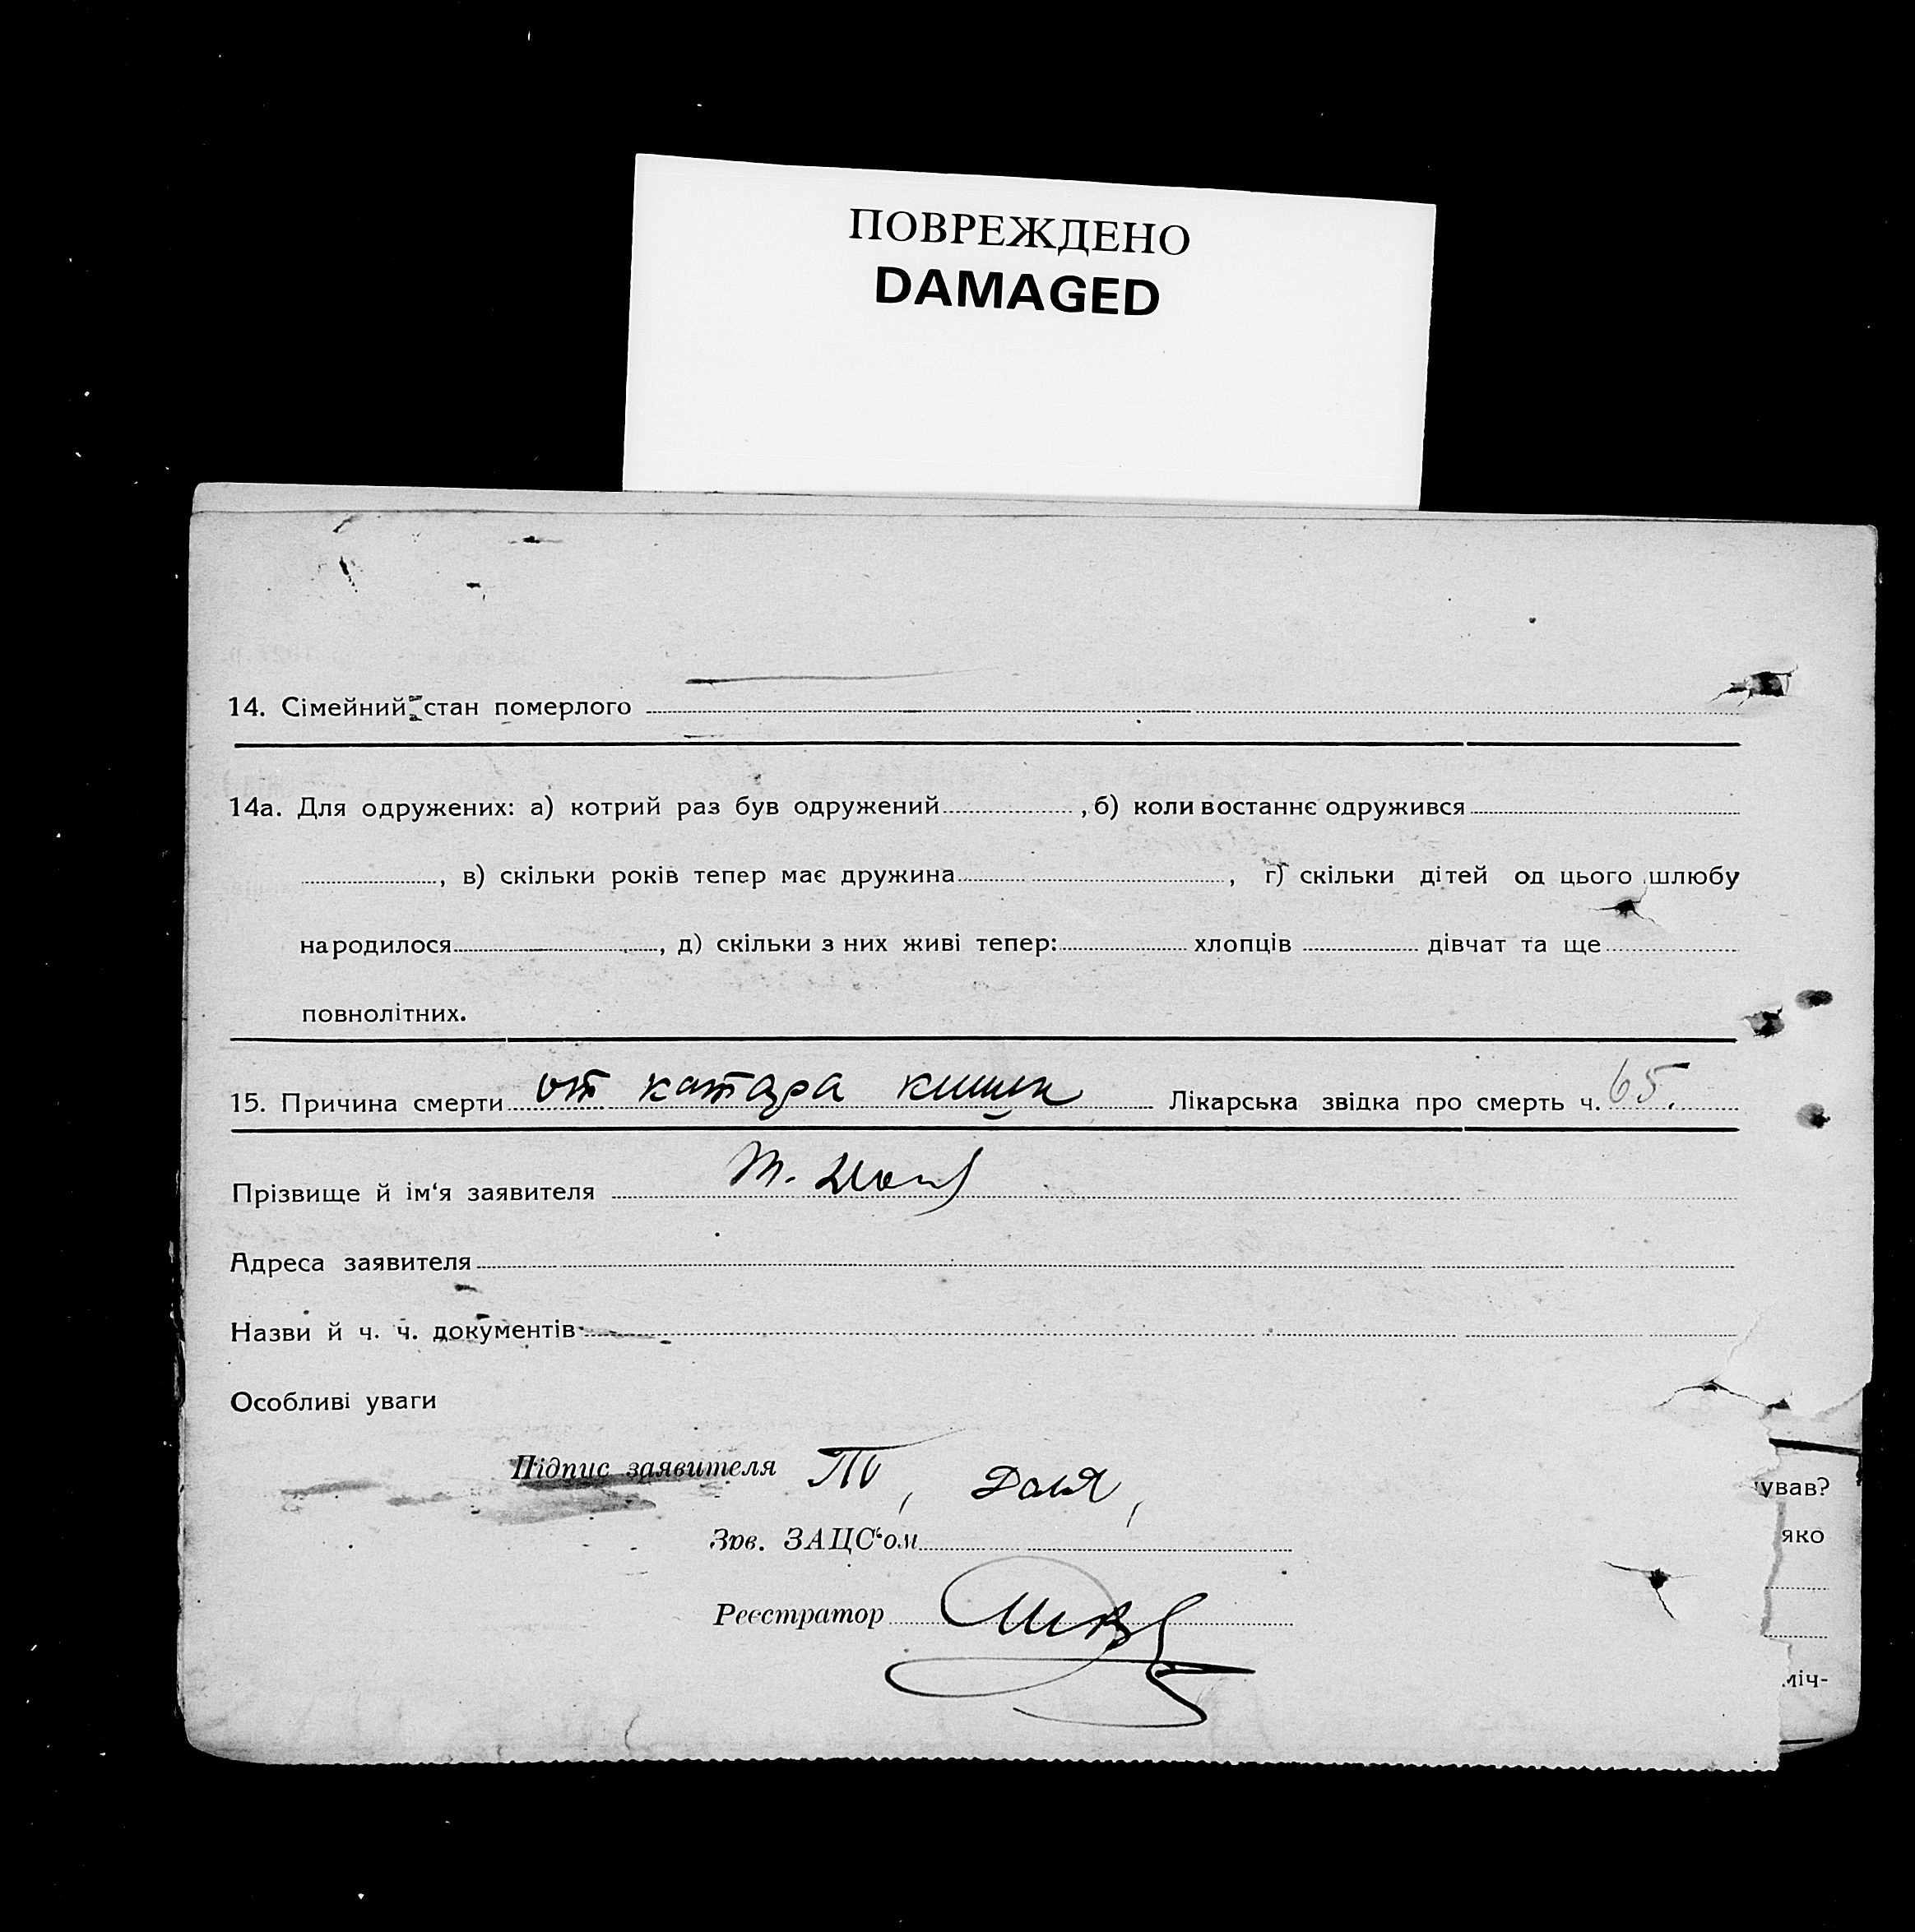 ПОВРЕЖДЕНО
DAMAGED
14. Сімейний стан померлого
14а. Для одружених: а) котрий раз був одружений , б) коли востаннє одружився
, в) скільки років тепер має дружина , г) скільки дітей од цього шлюбу
народилося , д) скільки з них живі тепер: хлопців дівчат та ще
повнолітних.
15. Причина смерти от катара кишек Лікарська звідка про смерть ч. 65.
Прізвище й ім‘я заявителя
Адреса заявителя
Назви й ч. ч. документів
Особливі уваги
Підпис заявителя Доля
ував?
Зав. ЗАЦС‘ом
яко
Реєстратор
міч-